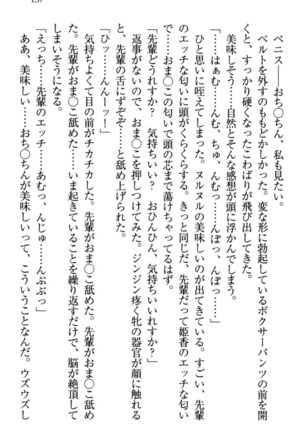 ペニス——おち〇ちん、私も見たい。
ベルトを外すのももどかしかった。変な形に勃起しているボクサーパンツの前を開
くと、すっかり硬くなったこわばりが飛び出してきた。
美味しそう……自然とそんな感想が頭に浮かんでしまう。
「……はぁむ……んむ、ちゅ、んむっ……んぽっ、んぽっ……」
ひと思いに咥えてしまった。ヌルヌルの美味しいのが出てきている。すごい、先輩
のエッチな匂いに頭がくらくらする。きっと同じだ、先輩だって姫香のエッチな匂い
で……おま〇この匂いで頭の芯まで蕩けちゃってるはず。
「先輩どうれすか？　気持ちいい？　おひんひん、気持ちいいれすか？」
返事がないので、おま〇こを押しつけてみた。ジンジン疼く牝の器官が顔に触れる
と、先輩の舌にずぞぞ……と舐め上げられた。
「ひッ……んんーッ！」
気持ちよくて目の前がチカチカした。先輩がおま〇こ舐めた。先輩がおま〇こ舐め
た。先輩がおま〇こ舐めた……いま起きていることを繰り返すだけで、脳が絶頂して
しまいそうになる。
「えっち……先輩のエッチ……あむっ、んじゅ……んぶぶっ」
ああ、美味しい……おち〇ちんが美味しいって、こういうことなんだ。ウズウズし